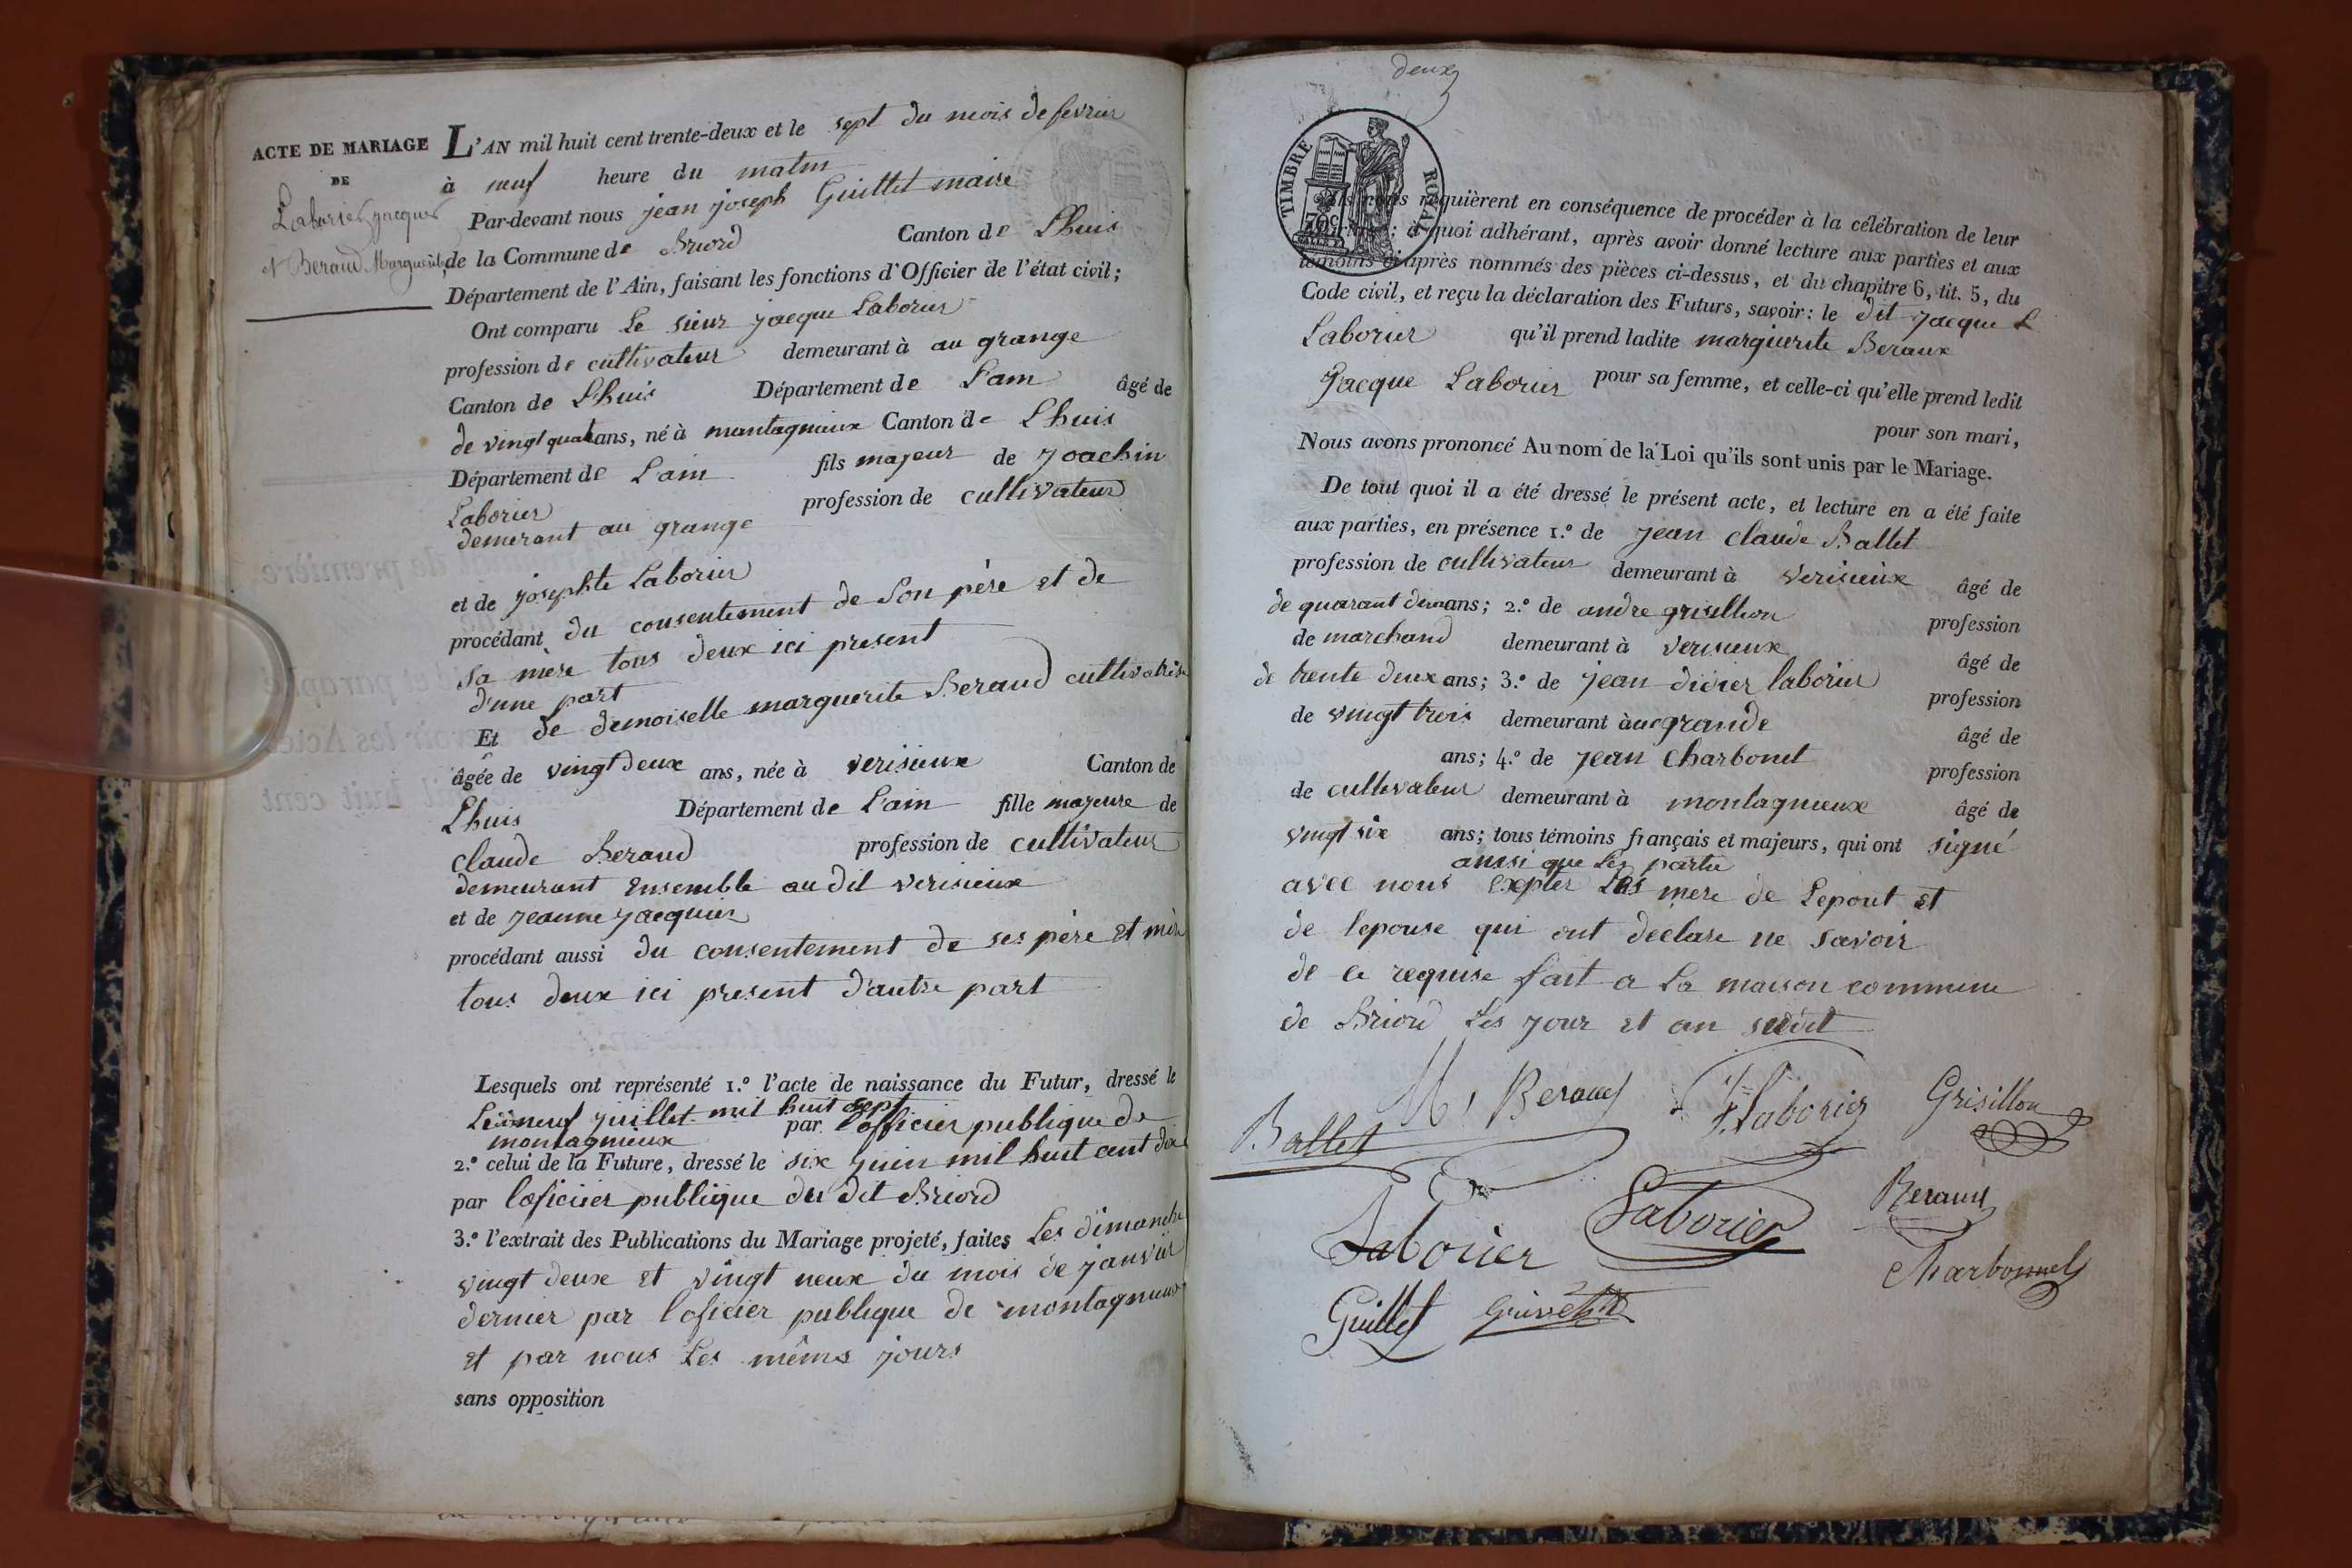 ACTE DE MARIAGE
DE
Laborier jacques
et Beraud Marguerite
L'AN mil huit cent trente-deux et le sept du mois de fevrier
à neuf heure du matin
Par-devant nous jean joseph Guillet maire
de la Commune de Briord Canton de Lhuis
Département de l'Ain, faisant les fonctions d'Officier de l'état civil;
Ont comparu Le sieur jacque Laborier
profession de cultivateur demeurant à au grange
Canton de Lhuis Département de L'ain âgé de
de vingt quatans, né à montagnieux Canton de Lhuis
Département de L'ain fils majeur de joachin
Laborier profession de cultivateur
demeurant au grange
et de josephte Laborier
procédant du consentement de Son père et de
sa mère tous deux ici present
d'une part
Et de demoiselle marguerite Beraud cultivatrise
âgée de vingt deux ans, née à verisieux Canton de
Lhuis Département de L'ain fille majeure de
claude Beraud profession de cultivateur
demeurant Ensemble au dit verisieux
et de jeanne jacquier
procédant aussi du consentement de ses père et mère
tous deux ici present d'autre part
Lesquels ont représenté 1.º l'acte de naissance du Futur, dressé le
neuf juillet mil huit sept par l'officier publique de
montagnieux
2.º celui de la Future, dressé le six juin mil huit cent dix
par loficier publique du dit Briord
3.º l'extrait des Publications du Mariage projeté, faites Les dimanche
vingt deux et vingt neux du mois de janvier
dernier par l'oficier publique de montagnieux
et par nous Les mêmes jours
sans opposition
deux
TIMBRE ROYAL
70c
Ils nous requièrent en conséquence de procéder à la célébration de leur
; à quoi adhérant, après avoir donné lecture aux parties et aux
témoins ci-après nommés des pièces ci-dessus, et du chapitre 6, tit. 5, du
Code civil, et reçu la déclaration des Futurs, savoir: le dit jacque L
Laborier qu'il prend ladite marguerite Beraux
pour sa femme, et celle-ci qu'elle prend ledit
Jacque Laborier pour son mari,
Nous avons prononcé Au nom de la Loi qu'ils sont unis par le Mariage.
De tout quoi il a été dressé le présent acte, et lecture en a été faite
aux parties, en présence 1.º de jean claude Ballet
profession de cultivateur demeurant à verisieux âgé de
de quarant deuxans; 2.º de andre grisillion profession
de marchand demeurant à verisieux âgé de
de trente deux ans; 3.º de jean didier laborier profession
de vingt trois demeurant à au grande âgé de
ans; 4.º de jean Charbonet profession
de cultivateur demeurant à montagnieux âgé de
vingt six ans; tous témoins français et majeurs, qui ont signé
ainsi que les partie
avec nous exepter Les mere de Lepout et
de lepouse qui ont déclare ne savoir
de ce requise fait a la maison commune
de Briord Les jour et an sudit
M. Beraud J. Laborier Grisillon
Ballet
Laborier Laborier Beraud
Charbonnet
Guillet